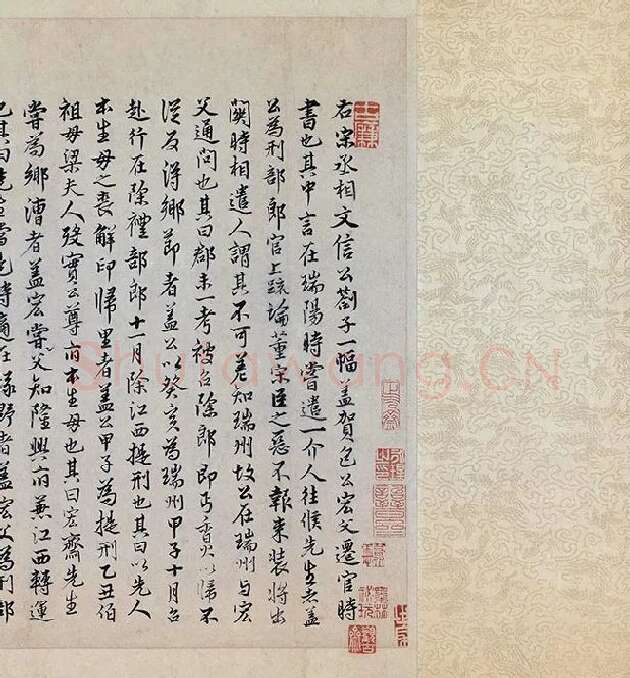 右宋丞相文信公劄子一幅蓋賀包公宏父遷官時
書也其中言在瑞陽時嘗遣一介人往候先生亦蓋
公為刑部郎官上疏論董宋臣之惡不報束裝將出
關時相遣人謂其不可差知瑞州故公在瑞州与宏
父通問也其曰郡未一考被召除郎即丐香火以歸不
從反得鄉節者蓋公以癸亥為瑞州甲子十月召
赴行在除禮部郎十一月除江西提刑也其曰以先人
本生母之喪解印歸里者蓋公甲子為提刑乙丑伯
祖母梁夫人歿實公尊府本生母也其曰宏齋先生
嘗為鄉漕者蓋宏嘗父知隆興府兼江西轉運
也其曰當時適在綠野者蓋宏父為刑部
Shufawang.CN